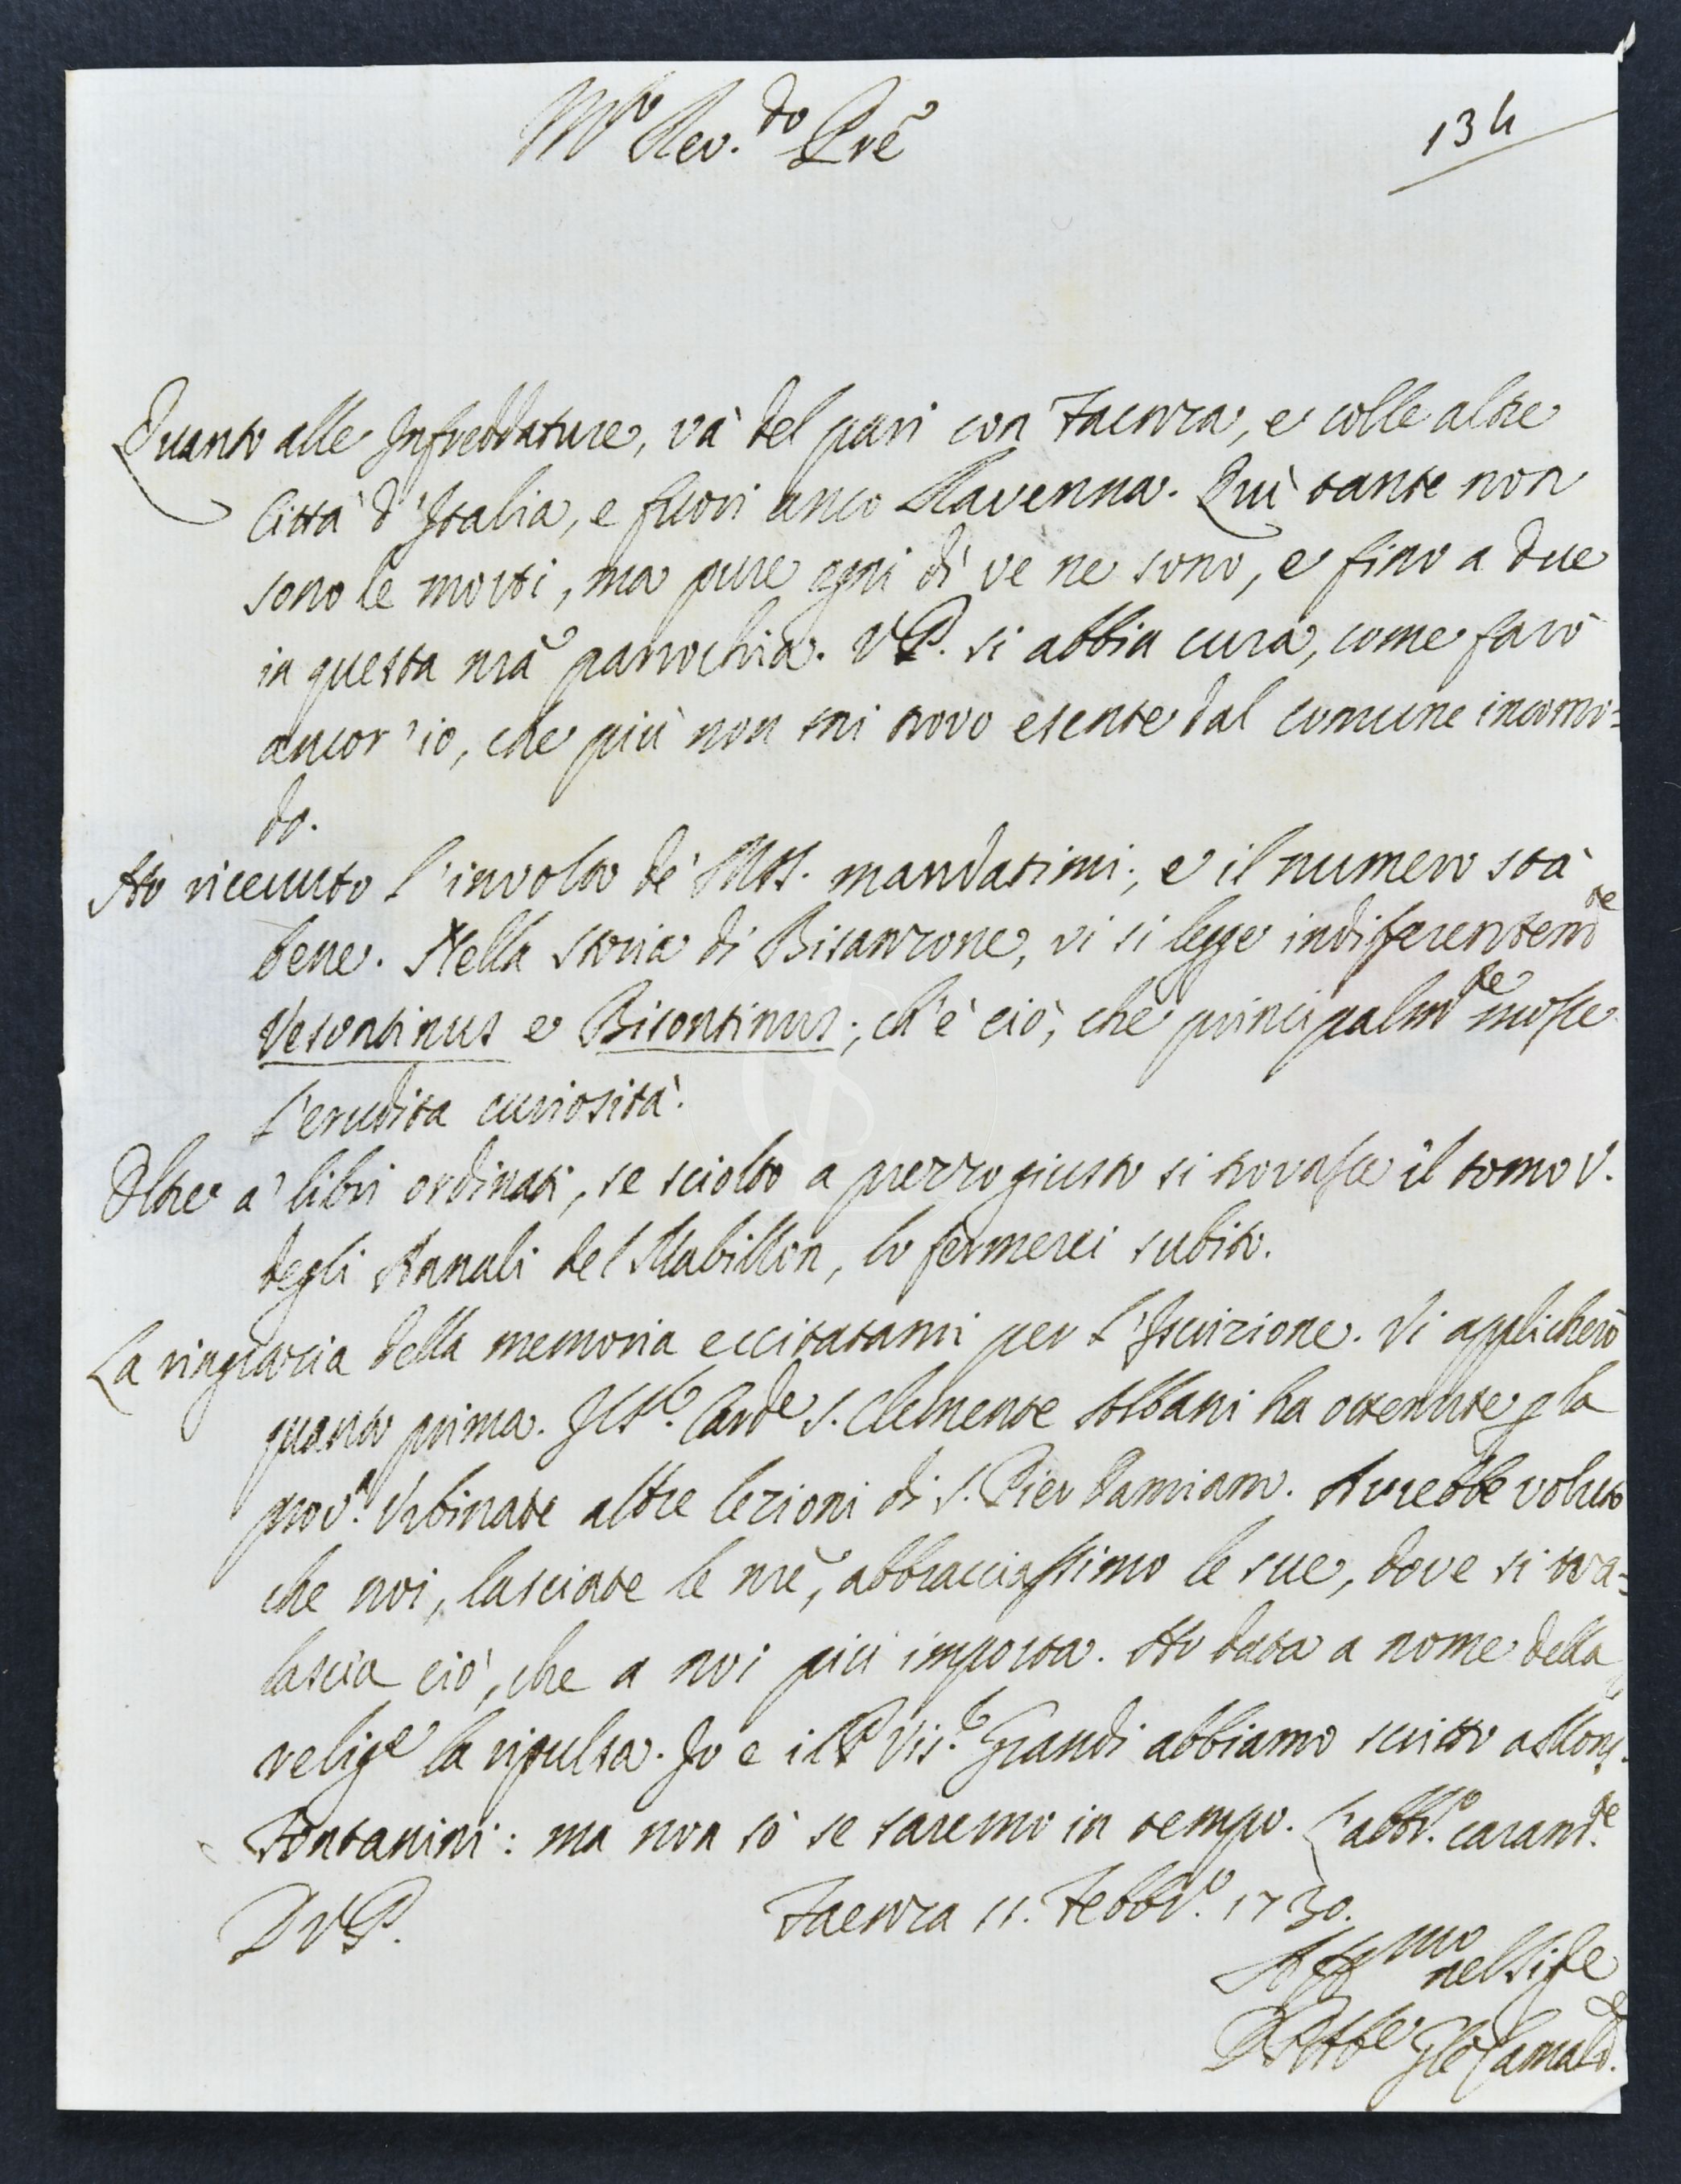 M.to Rev.do Prē
134
Quanto alle Infreddature, và del pari con Faenza, e colle altre
Città d'Italia, e fuori anco Ravenna. Quì tante non
sono le morti, ma pure ogni dì ve ne sono, e fino a due
in questa nrã parrochia. V. P. si abbia cura, come farò
ancor'io, che più non mi trovo esente dal comune incomo=
do.
Ho ricevuto l'involto de' Mss. mandatimi; e il numero stà
bene. Nella storia di Bisanzone, vi si legge indiferentem.te
Vesontinus e Bisontinus; ch'è ciò, che principalm.te mosse
l'erudita curiosità.
Oltre a' libri ordinati, se sciolto a prezzo giusto si trovasse il tomo V.
degli Annali del Mabillon, lo fermerei subito.
La ringrazia della memoria eccitatami per l'Iscrizione. Vi applicherò
quanto prima. Il Card.e S. Clemente Albani ha ottenute p la
prov.a Urbinate altre lezioni di S. Pier Damiano. Avrebbe voluto
che noi, lasciate le nrē, abbracciassimo le sue, dove si tra=
lascia ciò, che a noi più importa. Ho data a nome della
relig.e la ripulsa. Io e il P. Vis.re Grandi abbiamo scritto a Mons.
Fontanini: ma non sò se saremo in tempo. L'abbr.o caram.te
D V. P.
Faenza 11. Febbr.o 1730.
Aff.mo nel Sig.re
D. Abbe Gle Camald.